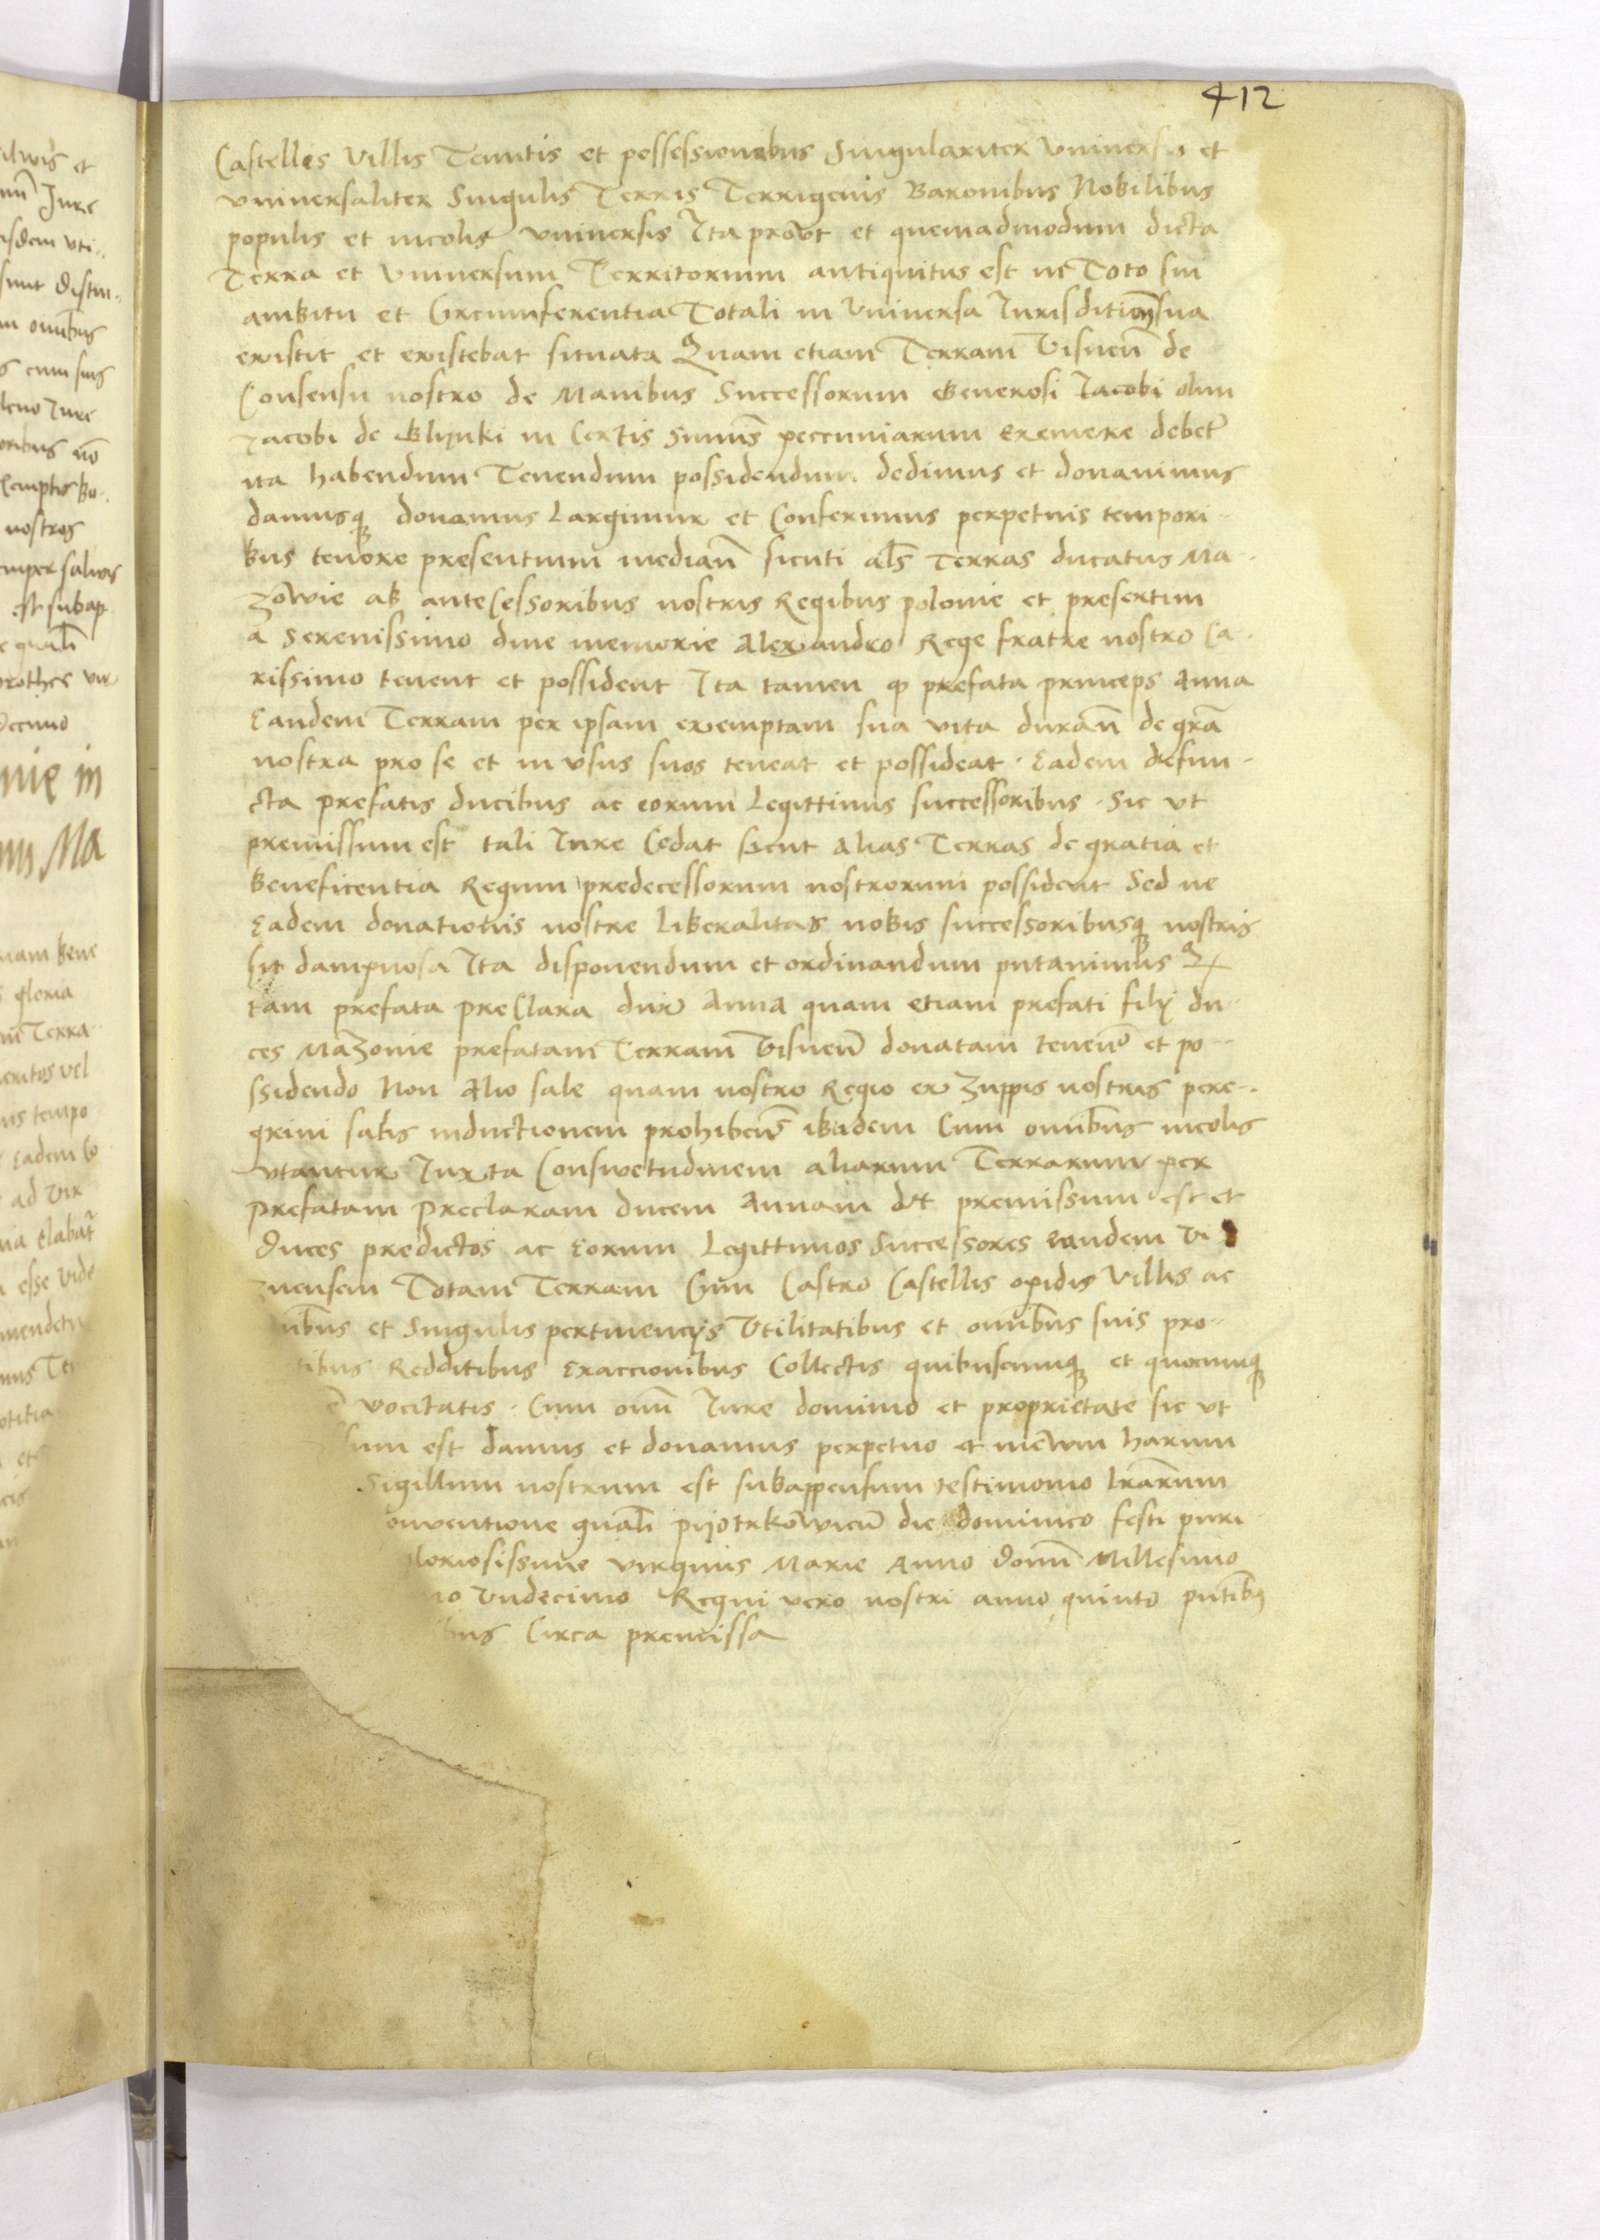 412
Castellis Villis Tenutis et possessionibus Singulariter Vniversis et
vniuersaliter Singulis Terris Terrigenis Baronibus Nobilibus
populis et incolis vniuersis Ita prout et quemadmodum dicta
Terra et Vniuersum Territorium antiquitus est in Toto sui
ambitu et Circumferentia Totali in Vniuersa Iurisditione sua
existit et existebat situata Quam etiam Terram Visnen̄ de
Consensu nostro de Manibus Successorum Generosi Iacobi olim
Iacobi de Glynki in Certis Sum̄s peccuniarum exemere debet
ita habendum Tenendum possidendum dedimus et donauimus
damusq donamus Largimur et Conferimus perpetuis tempori-
bus tenore presentium median̄ sicuti al̄s Terras ducatus Ma-
zowie ab antecessoribus nostris Regibus polonie et presertim
a Serenissimo diue memorie Alexandro Rege fratre nostro Ca-
rissimo tenent et possident Ita tamen q prefata princeps Anna
Eandem Terram per ipsam exemptam sua vita duran̄ de gr̄a
nostra pro se et in vsus suos teneat et possideat. Eadem defun-
cta prefatis ducibus ac eorum Legittimis successoribus. Sic vt
premissum est tali Iure Cedat sicut Alias Terras de gratia et
beneficentia Regum predecessorum nostrorum possident Sed ne
Eadem donationis nostre Liberalitas nobis successoribusq nostris
sit dampnosa Ita disponendum et ordinandum putauimus Q
tam prefata preclara dux Anna quam etiam prefati filij du-
ces Mazouie prefatam Terram Visnen̄ donatam tenen̄o et po-
ssidendo Non Alio sale quam nostro Regio ex Zuppis nostris pere-
grini salis inductionem prohiben̄o ibidem Cum omībus incolis
vtantur Iuxta Conswetudinem aliarum Terrarum per
prefatam preclaram ducem Annam vt premissum est et
Duces predictos ac Eorum Legittimos Successores eandem Vi
znensem Totam Terram Cum Castro Castellis opidis Villis ac
et Singulis pertinencijs Vtilitatibus et omībus suis pro-
Redditibus Exaccionibus Collectis quibuscumq et quocumq
vocitatis. Cum om̄i Iure dominio et proprietate sic vt
est damus et donamus perpetuo et in harum
Sigillum nostrum est subappensum testimonio lr̄arum
gn̄ali pijotrkowien̄ die dominico festi puri
virginis Marie Anno Domī Millesimo
Vndecimo Regni vero nostri anno quinto pn̄tibus
Circa premissa